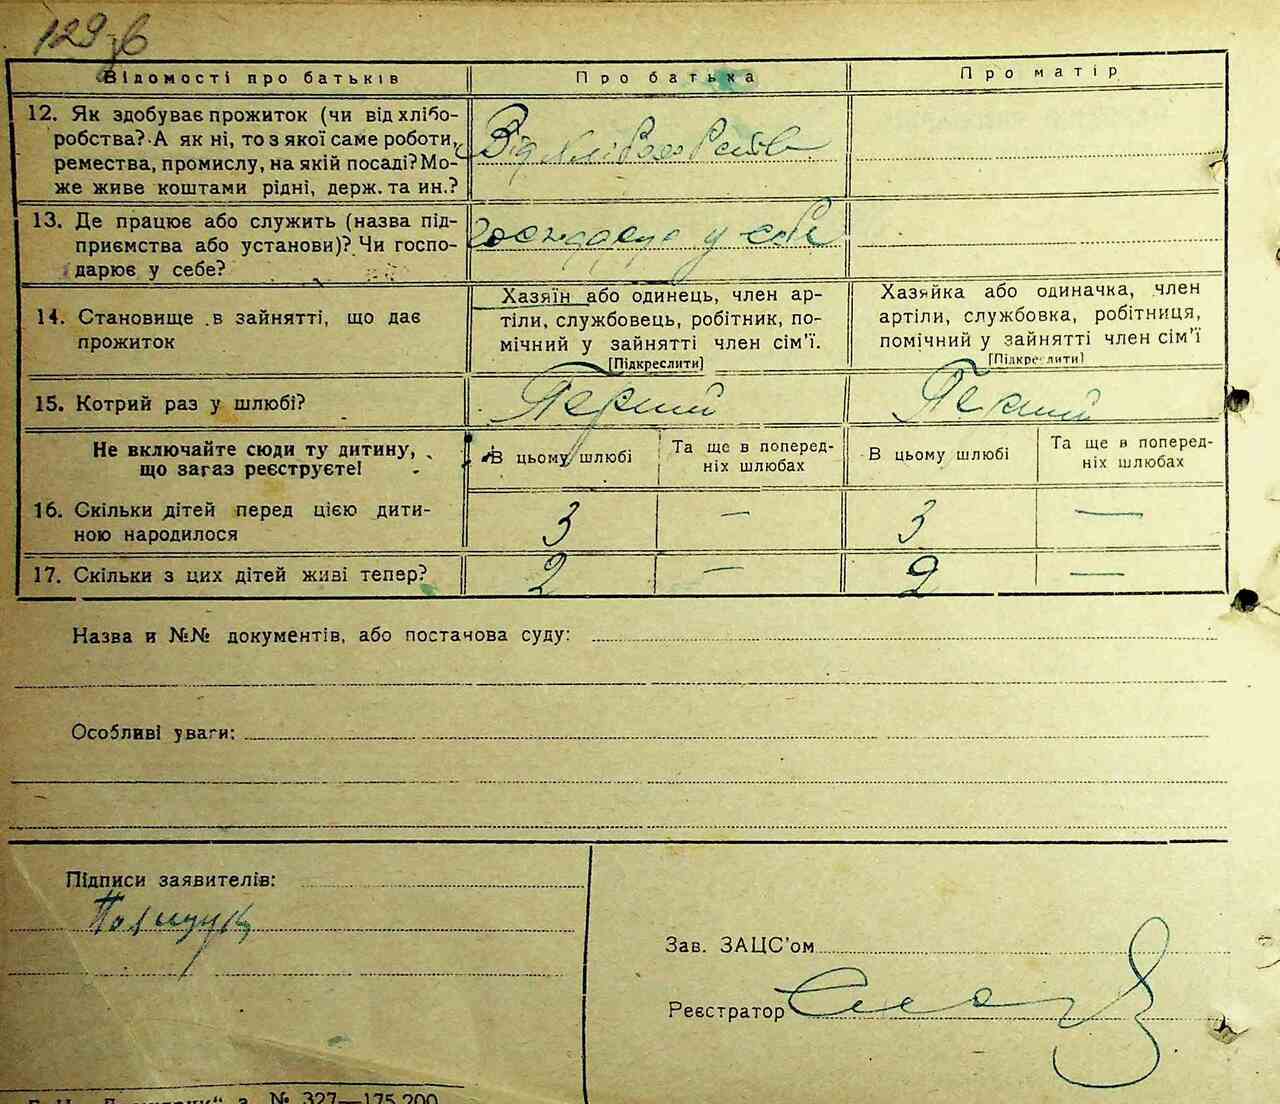 129зв
Відомості про батьків
Про батька
Про матір
12. Як здобуває прожиток (чи від хлібо-
робства? А як ні, то з якої саме роботи,
ремества, промислу, на якій посаді? Мо-
же живе коштами рідні, держ. та ин.?
Від хліборобства
13. Де працює або служить (назва під-
приємства або установи)? Чи госпо-
дарює у себе?
господарює у себе
14. Становище в зайнятті, що дає
прожиток
Хазяїн або одинець, член ар-
тіли, службовець, робітник, по-
мічний у зайнятті член сім'ї.
[Підкреслити]
Хазяйка або одиначка, член
артіли, службовка, робітниця,
помічний у зайнятті член сім'ї
[Підкреслити]
15. Котрий раз у шлюбі?
Перший
Перший
Не включайте сюди ту дитину,
що загаз реєструєте!
В цьому шлюбі
Та ще в поперед-
ніх шлюбах
В цьому шлюбі
Та ще в поперед-
ніх шлюбах
16. Скільки дітей перед цією дити-
ною народилося
3 — 3 —
17. Скільки з цих дітей живі тепер?
2 — 2 —
Назва и №№ документів, або постанова суду:
Особливі уваги:
Підписи заявителів:
Полищук
Зав. ЗАЦС'ом
Реєстратор
№ 327—175.200